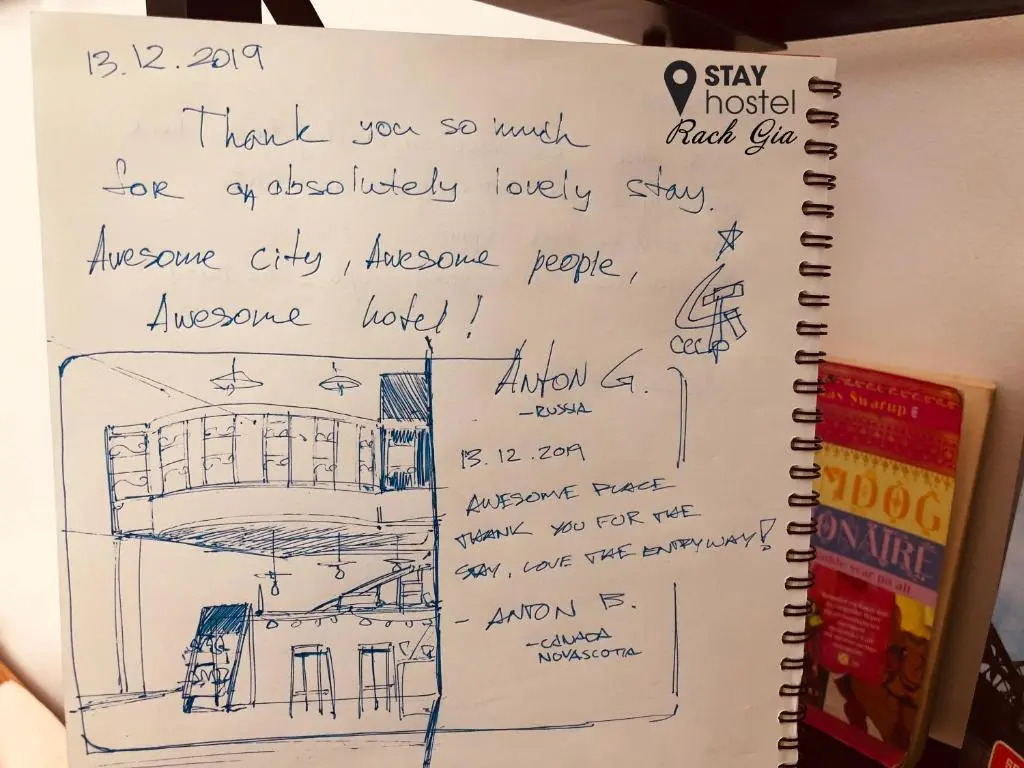 13.12.2019
STAY
hostel
Rach Gia
Thank you so much
for an absolutely lovely stay.
Awesome city, Awesome people,
Awesome hotel!
ANTON G.
-RUSSIA
13.12.2019
AWESOME PLACE
THANK YOU FOR THE
STAY, LOVE THE ENTRYWAY!
- ANTON B.
-CANADA
NOVASCOTIA
as Swarup
MDOG
ONAIRE